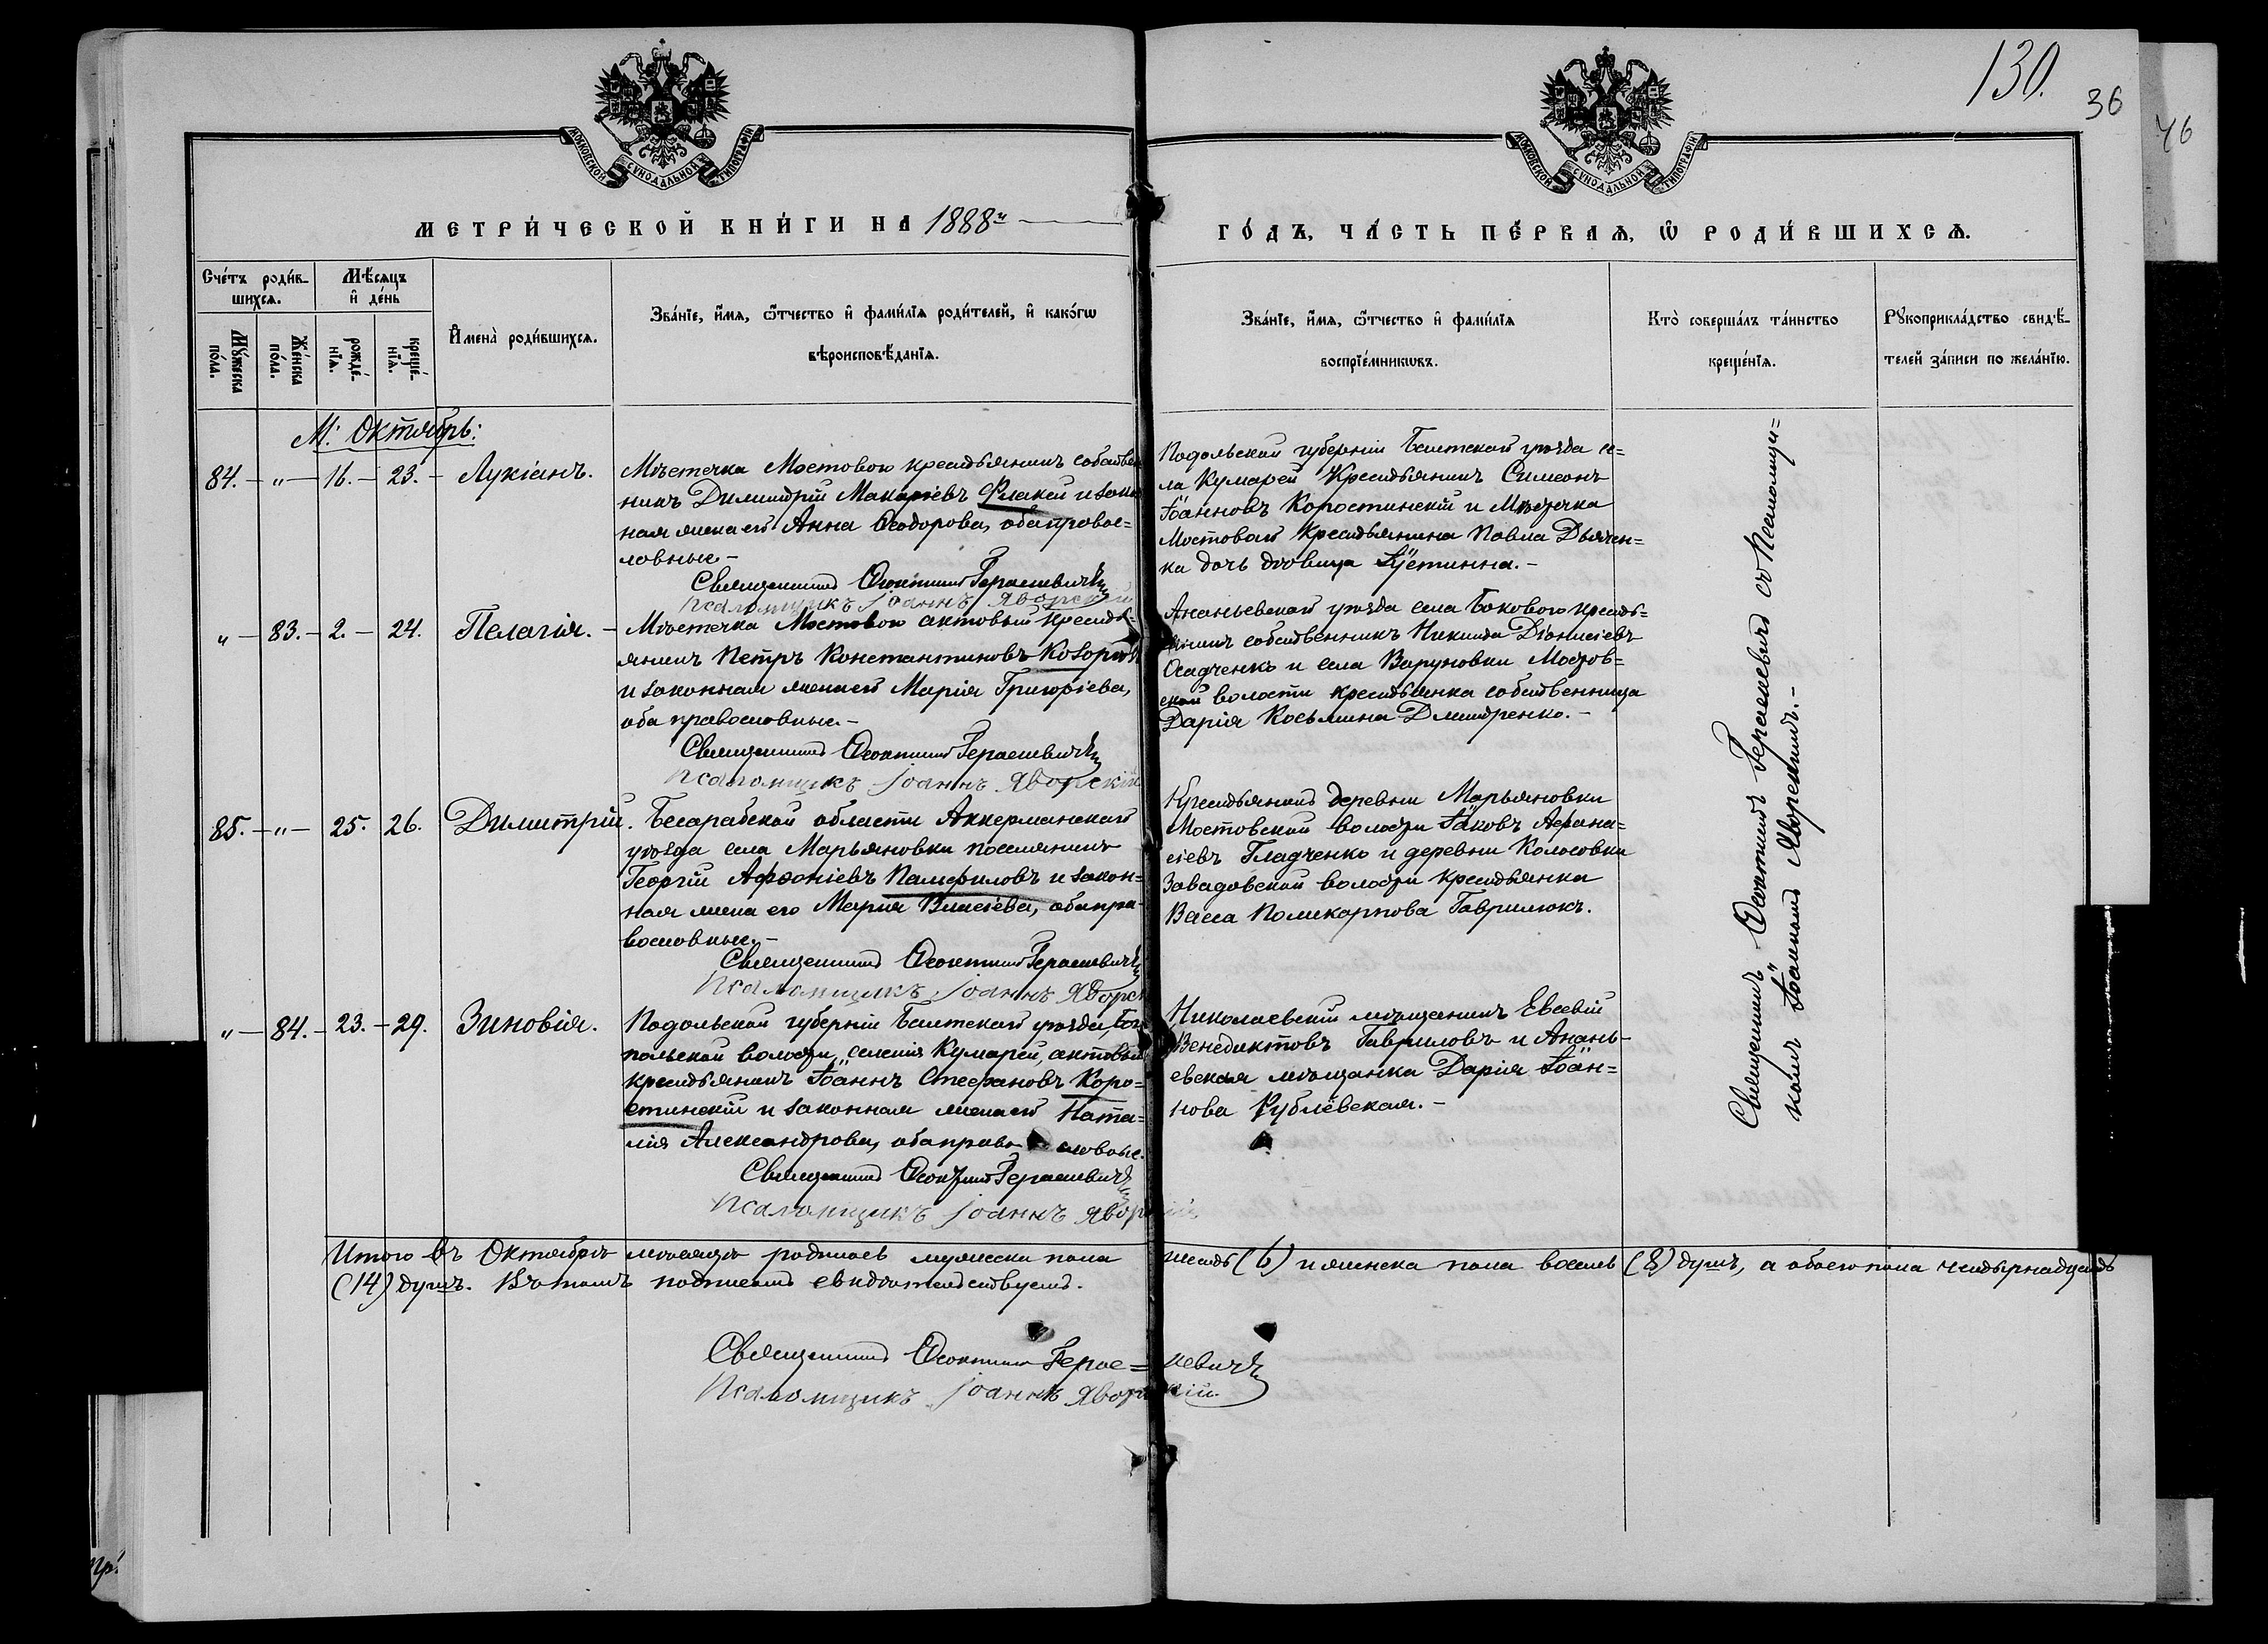 130.
36
46
МОСКОВСКОЙ СУНОДАЛЬНОЙ ТИПОГРАФІИ
МОСКОВСКОЙ СУНОДАЛЬНОЙ ТИПОГРАФІИ
МЕТРИ́ЧЕСКОЙ КНИ́ГИ НА 1888й
ГО́ДЪ, ЧА́СТЬ ПЕ́РВАѦ, Ѡ РОДИ́ВШИХСѦ.
Сче́тъ роди́в-
шихсѧ.
Мѣ́сѧцъ
и де́нь
Мꙋ́жеска
по́ла.
Же́нска
по́ла.
рожде́-
нїѧ.
креще́-
нїѧ.
Имена̀ роди́вшихсѧ.
Зва́нїе, и́мѧ, ѻ́тчество и фами́лїѧ роди́телей, и како́гѡ
вѣроисповѣ́данїѧ.
Зва́нїе, и́мѧ, ѻ́тчество и фами́лїѧ
воспрїе́мникѡвъ.
Кто̀ соверша́лъ та́инство
креще́нїѧ.
Рꙋкоприкла́дство свидѣ́-
телей за́писи по жела́нїю.
М: Октябрь:
84. — „ — 16. — 23. — Лукіанъ.
Мѣстечка Мостового крестьянинъ собствен
никъ Димитрій Макаріевъ Флакей и закон
ная жена его Анна Ѳеодорова, оба правос=
лавные. –
Священникъ Ѳеоктистъ Герасевичъ
Псаломщикъ Іоаннъ Яворскій
Подольской губерніи Балтскаго уѣзда се=
ла Кумарей Крестьянинъ Симеонъ
Іоанновъ Коростинскій и Мѣстечка
Мостового Крестьянина Павла Дьячен=
ка дочь дѣвица Іустинна. –
„ — 83. — 2. — 24. Пелагія. –
Мѣстечка Мостового актовый крестья=
янинъ Петръ Константиновъ
и законная жена его Марія Григоріева,
оба православные. –
Священникъ Ѳеоктистъ Герасевичъ
Псаломщикъ Іоаннъ Яворскій
Ананьевскаго уѣзда села Бокового кресть=
янинъ собственникъ Никита Діонисіевъ
Осадченко и села Варуновки Мостов=
ской волости крестьянка собственница
Дарія Косьмина Дмитренко. –
85. — „ — 25. 26. Димитрій.
Бесарабской области Аккерманскаго
уѣзда села Марьяновки поселянинъ
Георгій Афѳоніевъ Памфиловъ и закон=
ная жена его Марія Власіева, оба пра-
вославные. –
Священникъ Ѳеоктистъ Герасевичъ
Псаломщикъ Іоаннъ Яворск
Крестьянинъ деревни Марьяновки
Мостовской волости Іаковъ Афана=
сіевъ Гладченко и деревни Колосовки
Завадовской волости крестьянка
Васса Поликарпова Гаврилюкъ.
„ — 84. — 23. — 29. Зиновія.
Подольской губерніи Балтскаго уѣзда, Бого
польской волости, селенія Кумарей, актовый
крестьянинъ Іоаннъ Стефановъ Коро=
стинскій и законная жена его Ната=
лія Александрова, оба право славные.
Священникъ Ѳеоктистъ Герасевичъ
Псаломщикъ Іоаннъ Яворскій
Николаевскій мѣщанинъ Евсевій
Венедиктовъ Гавриловъ и Анань-
евская мѣщанка Дарія Іоан=
нова Рублёвская. –
Священникъ Ѳеоктистъ Герасевичъ съ Псаломщи=
комъ Іоанномъ Яворскимъ. –
Итого въ Октябрѣ мѣсяцѣ родилось мужеска пола шесть (6) и женска пола восемь (8) душъ, а обоего пола четырнадцать
(14) душъ. Въ томъ подписомъ свидѣтельствуемъ.
Священникъ Ѳеоктистъ Герас=евичъ
Псаломщикъ Іоаннъ Яворскій.